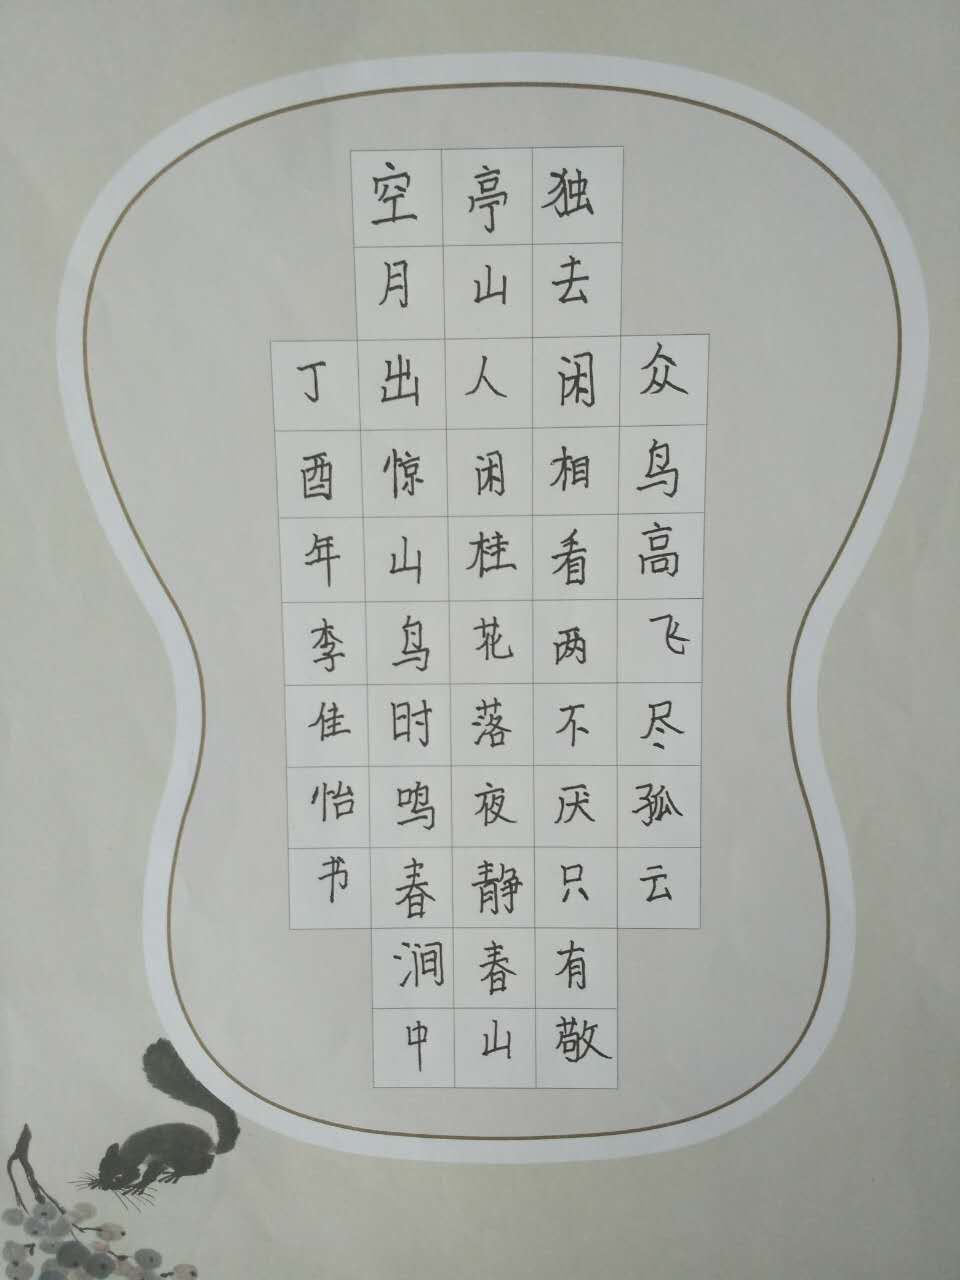 众鸟高飞尽孤云
独去闲相看两不厌只有敬
亭山人闲桂花落夜静春山
空月出惊山鸟时鸣春涧中
丁酉年李佳怡书